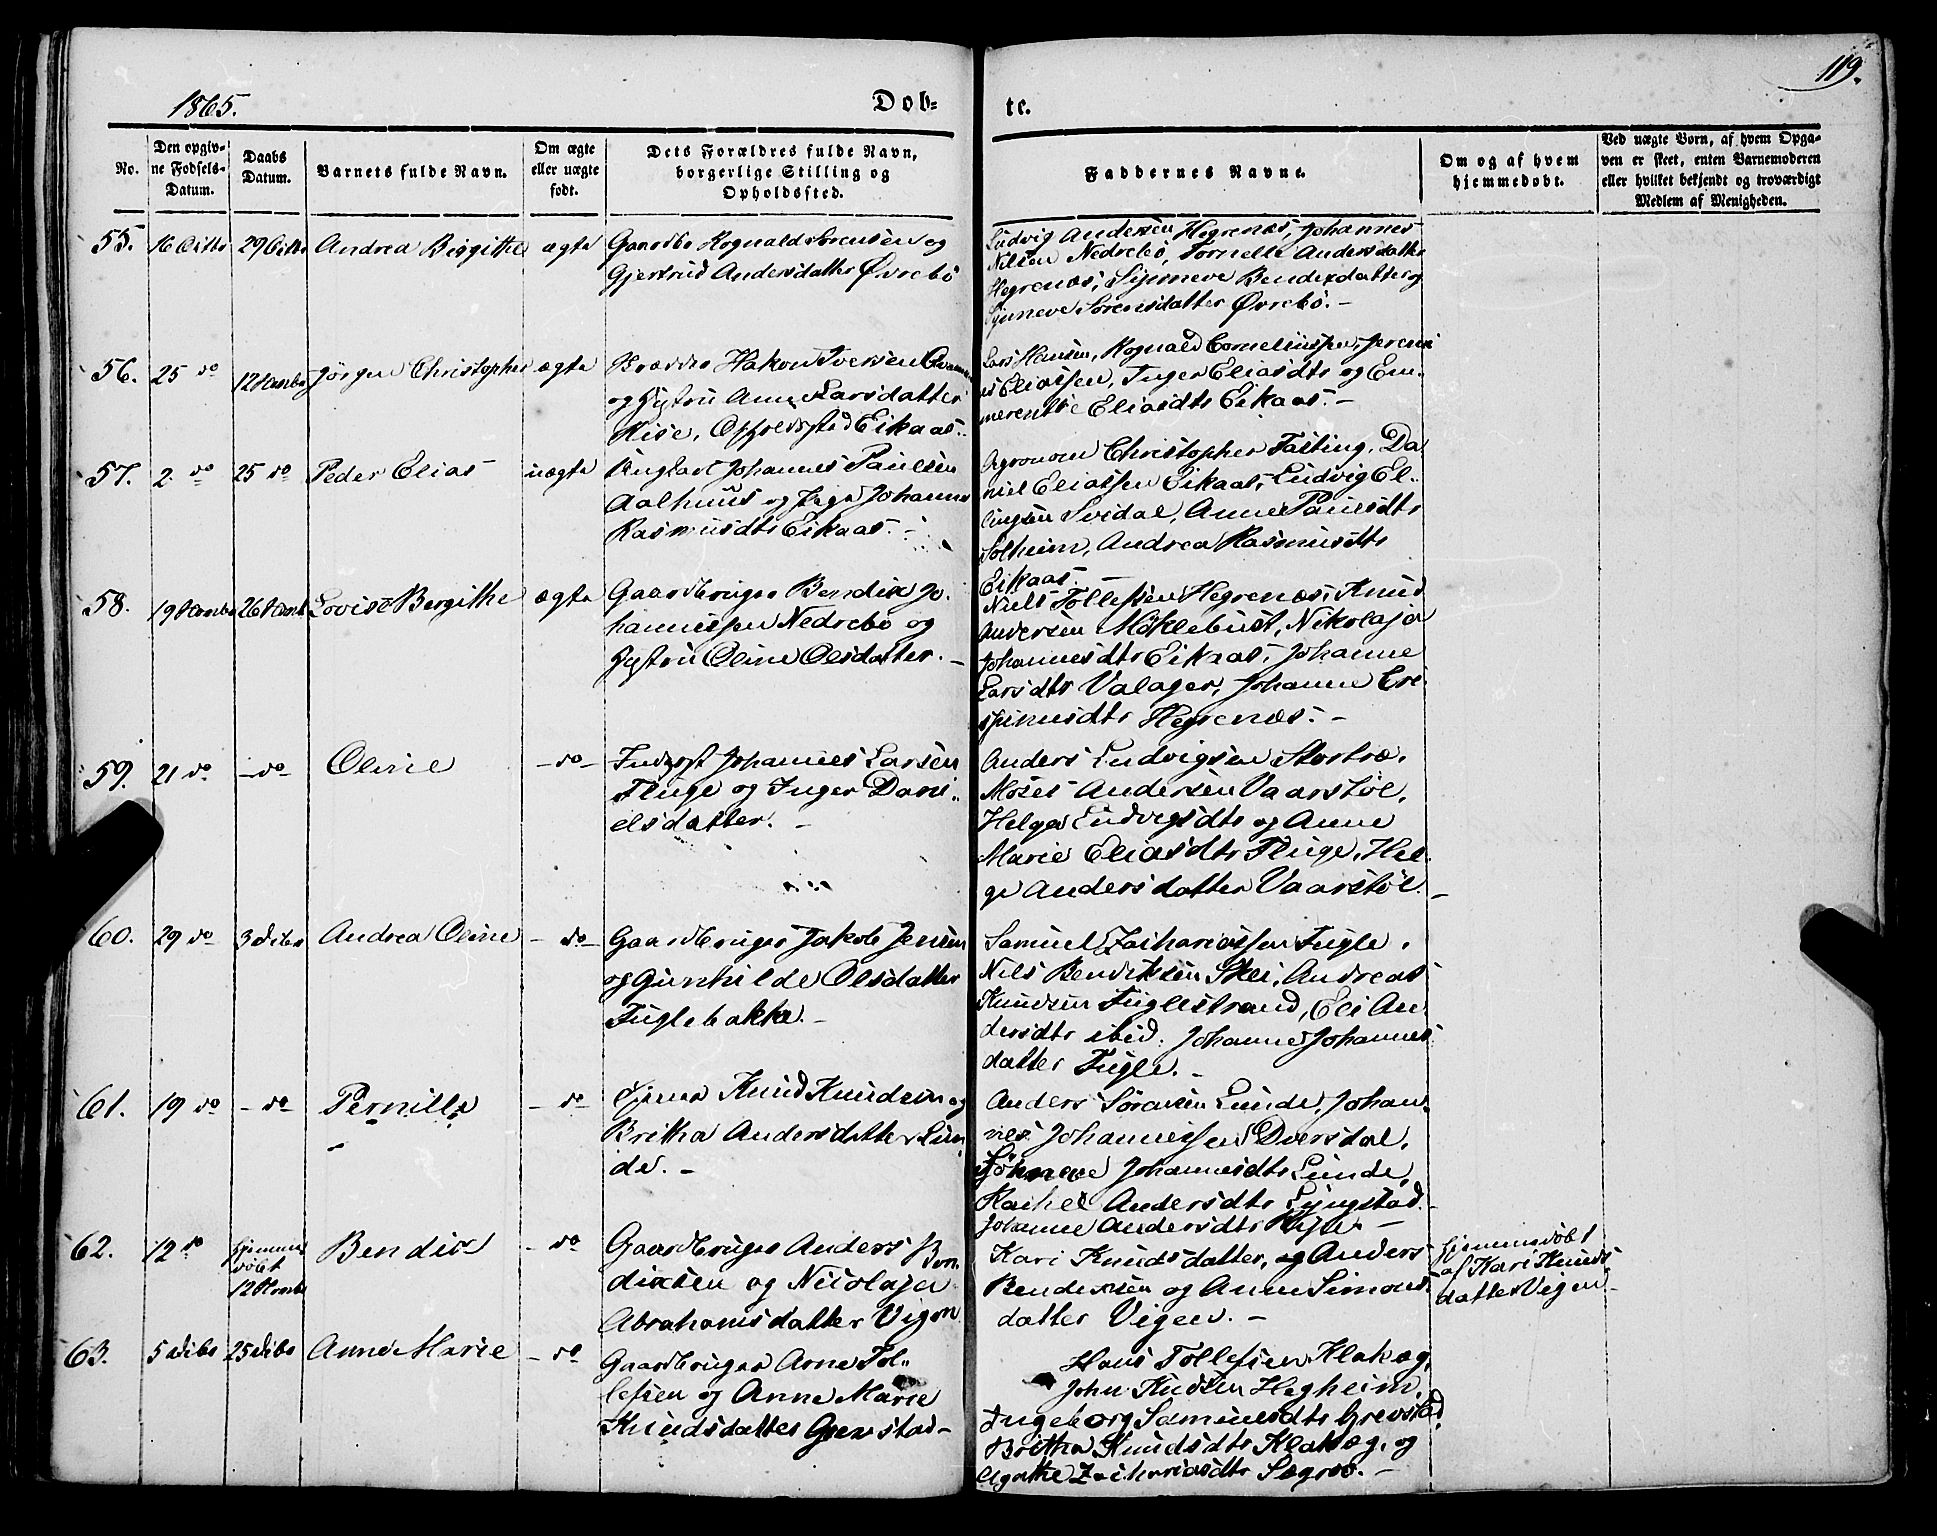 1865.
Døb-
te.
119.
No.
Den opgiv-
ne Fødsels-
Datum.
Daabs
Datum.
Barnets fulde Navn.
Om ægte
eller uægte
født.
Dets Forældres fulde Navn,
borgerlige Stilling og
Opholdssted.
Faddernes Navne.
Om og af hvem
hjemmedøbt.
Ved uægte Børn, af hvem Opga-
ven er skeet, enten Barnemoderen
eller hvilket bekjendt og troværdigt
Medlem af Menigheden.
55. 16 Octbr 29 Octbr Andrea Birgithe ægte
Gaardbr Rognald Sørensen og
Gjertrud Andersdatter Øvrebö
Ludvig Andersen Hegrenæs, Johannes
Nilsen Nedrebö, Andersdatter
Hegrenæs, Synneve Bendixdatter og
Synneve Sorensdatter Øvrebö. -
56. 25 do 12 Novbr Jørgen Christopher ægte
Hakon Iversen
og Hustru Anne Larsdatter
Eikaas.
Lars Hansen, Rognald Corneliussen, Jeremi
as Eliassen, Inger Eliasdtr og Em-
merentse Eliasdtr Eikaas. -
57. 2 do 25 do Peder Elias uægte
Ungkarl Johannes Paulsen
Aalhuus og Pige Johanne
Rasmusdtr Eikaas. -
Agronom Christopher Fasting, Da
niel Eliassen Eikaas, Ludvig El-
lingsen Svidal, Anne Paulsdtr
Solheim, Andrea Rasmusdtr
Eikaas.
58. 19 Novbr 26 Novbr Lovise Bergithe ægte
Gaardbruger Bendix Jo-
hannessen Nedrebö og
Hustru Oline Olsdatter. -
Niels Tollefsen Hegrenæs, Knud
Andersen Møklebust, Nikolaja
Johannesdtr Eikaas, Johanne
Larsdtr Valager, Johanne Cre
spinusdtr Hegrenæs. -
59. 21 do - do - Oline - do -
Inderst Johannes Larsen
Fluge og Inger Dani-
elsdatter. -
Anders Ludvigsen Stortræ,
Moses Andersen Vaarstöl,
Helga Ludvigsdtr og Anne
Marie Eliasdtr Fluge, Hel-
ge Andersdatter Vaarstöl. -
60. 29 do 3 Decbr Andrea Oline - do -
Gaardbruger Jakob Jensen
og Gunhilde Olsdatter
Fuglebakke. -
Samuel Zachariassen Fugle,
Nils Bendiksen Skei, Andreas
Knudsen Fuglestrand, Eli An-
dersdtr ibid. Johanne Johannes
datter Fugle. -
61. 19 do - do - Pernille - do -
Tjener Knud Knudsen og
Britha Andersdatter Lun
de. -
Anders Sörensen Lunde, Johan-
nes Johannessen Dversdal,
Johannesdtr Lunde,
Rachel Andersdtr Lyngstad.
Johanne Andersdtr -
62. 12 do hjemme
døbt
12 Novbr Bendix - do -
Gaardbruger Anders Ben
dixsen og Nicolaja
Abrahamsdatter Vigen
Kari Knudsdatter, og Anders
Bendixsen og Anne Simons-
datter Vigen. -
hjemmedøbt
af Kari Knuds
datter Vigen -
63. 5 Decbr 25 Decbr Anne Marie - do -
Gaardbruger Arne Tol-
lefsen og Anne Marie
Knudsdatter Grevstad -
Hans Tollefsen Klakæg,
John Knudsen Hegheim,
Ingeborg Samuelsdtr Grevstad,
Britha Knudsdtr Klakæg, og
Agathe Zachariasdtr Sægrov. -